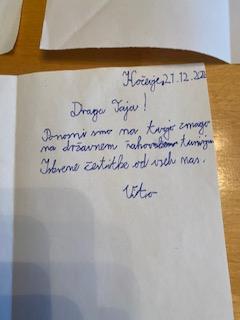 Kočevje, 21.12.202
Draga Taja!
Ponosni smo na tvojo zmago
na državnem šahovskem turnirju
Iskrene čestitke od vseh nas.
Vito